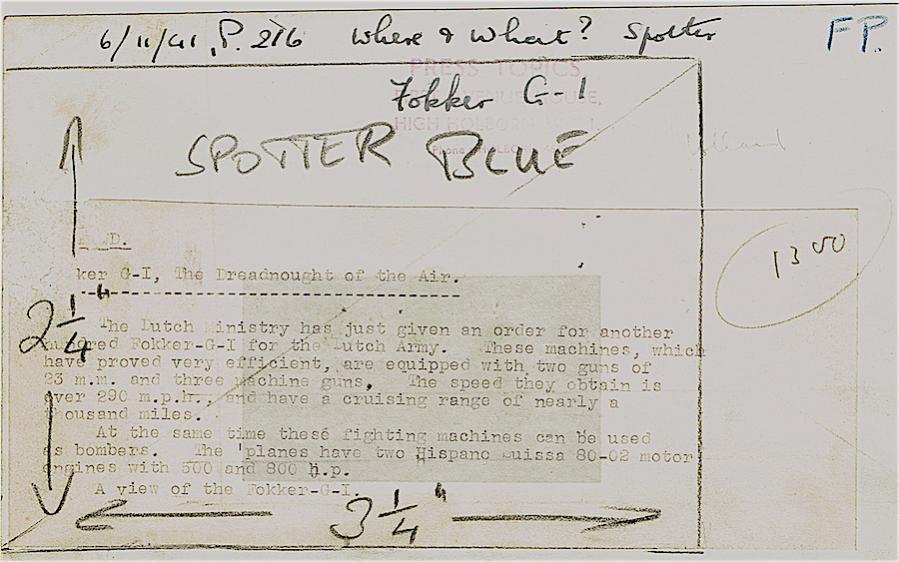 6/11/41, P. 276 Where & What? Spotter
FP.
PRESS TOPICS
Fokker G-1
HOUSE,
HIGH HOLBORN
SPOTTER BLUE
D.
1300
ker G-I, The Dreadnought of the Air.
2 1/4"
The Dutch Ministry has just given an order for another
hundred Fokker-G-I for the Dutch Army. These machines, which
have proved very efficient, are equipped with two guns of
23 m.m. and three machine guns. The speed they obtain is
over 290 m.p.h., and have a cruising range of nearly a
thousand miles.
At the same time these fighting machines can be used
as bombers. The 'planes have two Hispano Suissa 80-02 motor
engines with 500 and 800 h.p.
A view of the Fokker-G-I.
3 1/4"